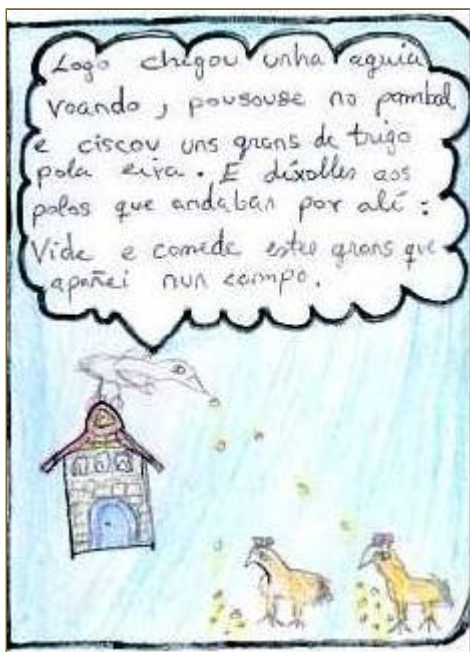 Logo chegou unha aguia
voando, pousouse no pombal
e ciscou uns grans de trigo
pola eira. E díxolles aos
polos que andaban por alí:
Vide e comede estes grans que
apañei nun campo.